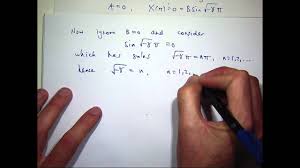 A=0, X(π)=B sin √-γ π
Now ignore B=0 and consider
sin √-γ π = 0
which has solns √-γ π = nπ, n=1,2,...
hence √-γ = n, n=1,2,